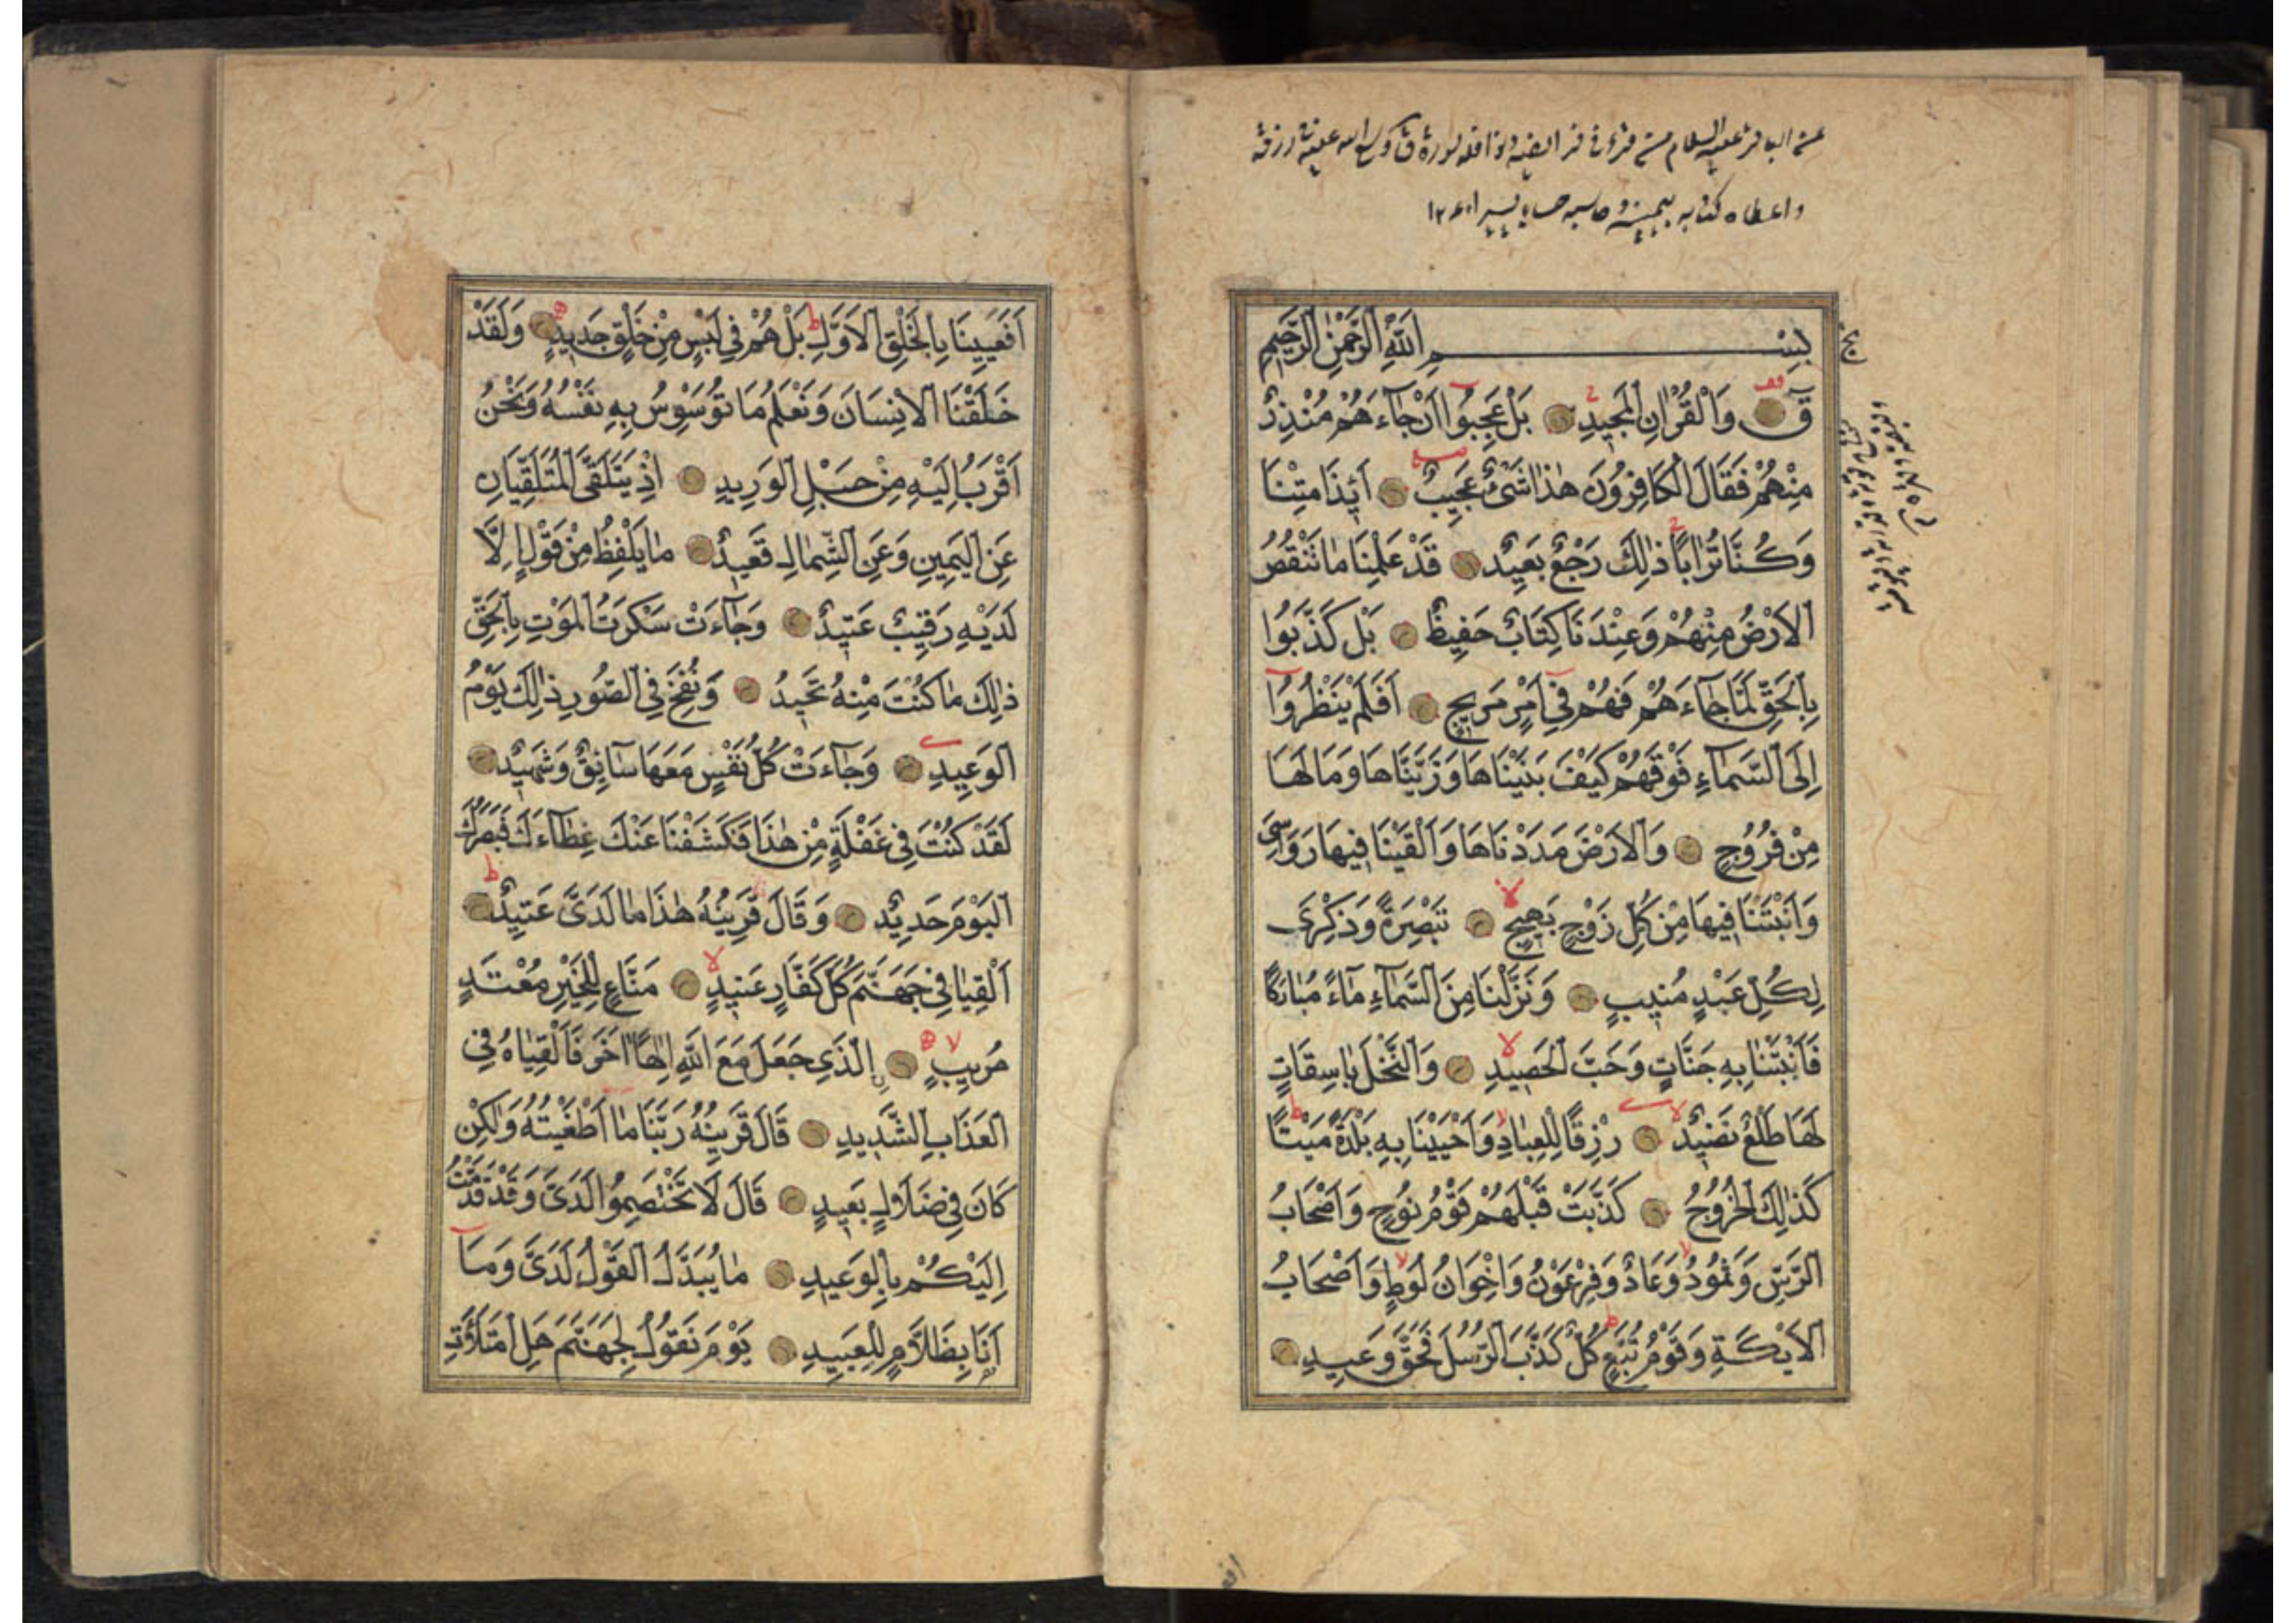 عن الباقر علیه السلام من قرء فی فرائضه و نوافله سورة ق وسع الله علیه رزقه
و اعطاه کتابه بیمینه و حاسبه حسابا یسیرا
بِسْمِ اللّٰهِ الرَّحْمٰنِ الرَّحِيمِ
قٓ وَالْقُرْاٰنِ الْمَجِيدِ بَلْ عَجِبُوٓا اَنْ جَآءَهُمْ مُنْذِرٌ
مِنْهُمْ فَقَالَ الْكَافِرُونَ هٰذَا شَىْءٌ عَجِيبٌ ءَاِذَا مِتْنَا
وَكُنَّا تُرَابًا ذٰلِكَ رَجْعٌ بَعِيدٌ قَدْ عَلِمْنَا مَا تَنْقُصُ
الْاَرْضُ مِنْهُمْ وَعِنْدَنَا كِتَابٌ حَفِيظٌ بَلْ كَذَّبُوا
بِالْحَقِّ لَمَّا جَآءَهُمْ فَهُمْ فِىٓ اَمْرٍ مَرِيجٍ اَفَلَمْ يَنْظُرُوٓا
اِلَى السَّمَآءِ فَوْقَهُمْ كَيْفَ بَنَيْنَاهَا وَزَيَّنَّاهَا وَمَا لَهَا
مِنْ فُرُوجٍ وَالْاَرْضَ مَدَدْنَاهَا وَاَلْقَيْنَا فِيهَا رَوَاسِىَ
وَاَنْبَتْنَا فِيهَا مِنْ كُلِّ زَوْجٍ بَهِيجٍ تَبْصِرَةً وَذِكْرٰى
لِكُلِّ عَبْدٍ مُنِيبٍ وَنَزَّلْنَا مِنَ السَّمَآءِ مَآءً مُبَارَكًا
فَاَنْبَتْنَا بِهِ جَنَّاتٍ وَحَبَّ الْحَصِيدِ وَالنَّخْلَ بَاسِقَاتٍ
لَهَا طَلْعٌ نَضِيدٌ رِزْقًا لِلْعِبَادِ وَاَحْيَيْنَا بِهِ بَلْدَةً مَيْتًا
كَذٰلِكَ الْخُرُوجُ كَذَّبَتْ قَبْلَهُمْ قَوْمُ نُوحٍ وَاَصْحَابُ
الرَّسِّ وَثَمُودُ وَعَادٌ وَفِرْعَوْنُ وَاِخْوَانُ لُوطٍ وَاَصْحَابُ
الْاَيْكَةِ وَقَوْمُ تُبَّعٍ كُلٌّ كَذَّبَ الرُّسُلَ فَحَقَّ وَعِيدِ
اَفَعَيِينَا بِالْخَلْقِ الْاَوَّلِ بَلْ هُمْ فِى لَبْسٍ مِنْ خَلْقٍ جَدِيدٍ وَلَقَدْ
خَلَقْنَا الْاِنْسَانَ وَنَعْلَمُ مَا تُوَسْوِسُ بِهِ نَفْسُهُ وَنَحْنُ
اَقْرَبُ اِلَيْهِ مِنْ حَبْلِ الْوَرِيدِ اِذْ يَتَلَقَّى الْمُتَلَقِّيَانِ
عَنِ الْيَمِينِ وَعَنِ الشِّمَالِ قَعِيدٌ مَا يَلْفِظُ مِنْ قَوْلٍ اِلَّا
لَدَيْهِ رَقِيبٌ عَتِيدٌ وَجَآءَتْ سَكْرَتُ الْمَوْتِ بِالْحَقِّ
ذٰلِكَ مَا كُنْتَ مِنْهُ تَحِيدُ وَنُفِخَ فِى الصُّورِ ذٰلِكَ يَوْمُ
الْوَعِيدِ وَجَآءَتْ كُلُّ نَفْسٍ مَعَهَا سَآئِقٌ وَشَهِيدٌ
لَقَدْ كُنْتَ فِى غَفْلَةٍ مِنْ هٰذَا فَكَشَفْنَا عَنْكَ غِطَآءَكَ فَبَصَرُكَ
الْيَوْمَ حَدِيدٌ وَقَالَ قَرِينُهُ هٰذَا مَا لَدَىَّ عَتِيدٌ
اَلْقِيَا فِى جَهَنَّمَ كُلَّ كَفَّارٍ عَنِيدٍ مَنَّاعٍ لِلْخَيْرِ مُعْتَدٍ
مُرِيبٍ اِلَّذِى جَعَلَ مَعَ اللّٰهِ اِلٰهًا اٰخَرَ فَاَلْقِيَاهُ فِى
الْعَذَابِ الشَّدِيدِ قَالَ قَرِينُهُ رَبَّنَا مَآ اَطْغَيْتُهُ وَلٰكِنْ
كَانَ فِى ضَلَالٍ بَعِيدٍ قَالَ لَا تَخْتَصِمُوا لَدَىَّ وَقَدْ قَدَّمْتُ
اِلَيْكُمْ بِالْوَعِيدِ مَا يُبَدَّلُ الْقَوْلُ لَدَىَّ وَمَآ
اَنَا بِظَلَّامٍ لِلْعَبِيدِ يَوْمَ نَقُولُ لِجَهَنَّمَ هَلِ امْتَلَأْتِ